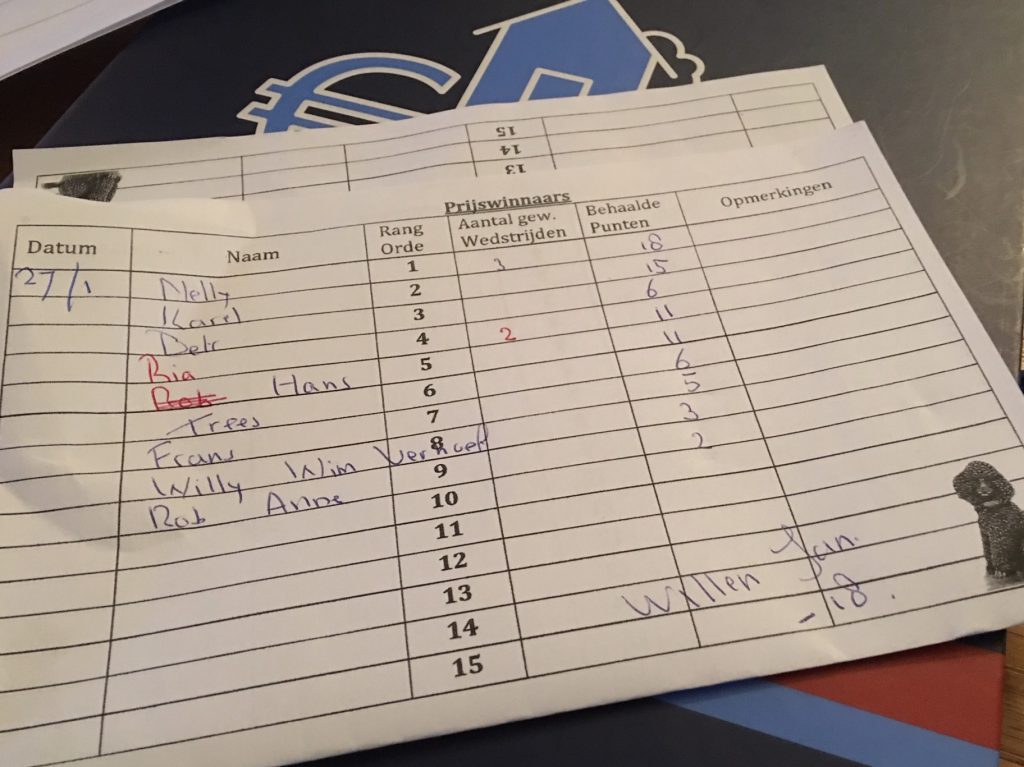 €
15
14
13
Prijswinnaars
Datum Naam Rang Orde Aantal gew. Wedstrijden Behaalde Punten Opmerkingen
27/1 Nelly 1 3 18
Karel 2 15
3 6
Ria 4 2 11
Hans 5 11
Trees 6 6
Frans 7 5
Willy Wim Verhoef 8 3
Rob Anne 9 2
10
11
12
13
14
15
Willen Jan.
- 18.